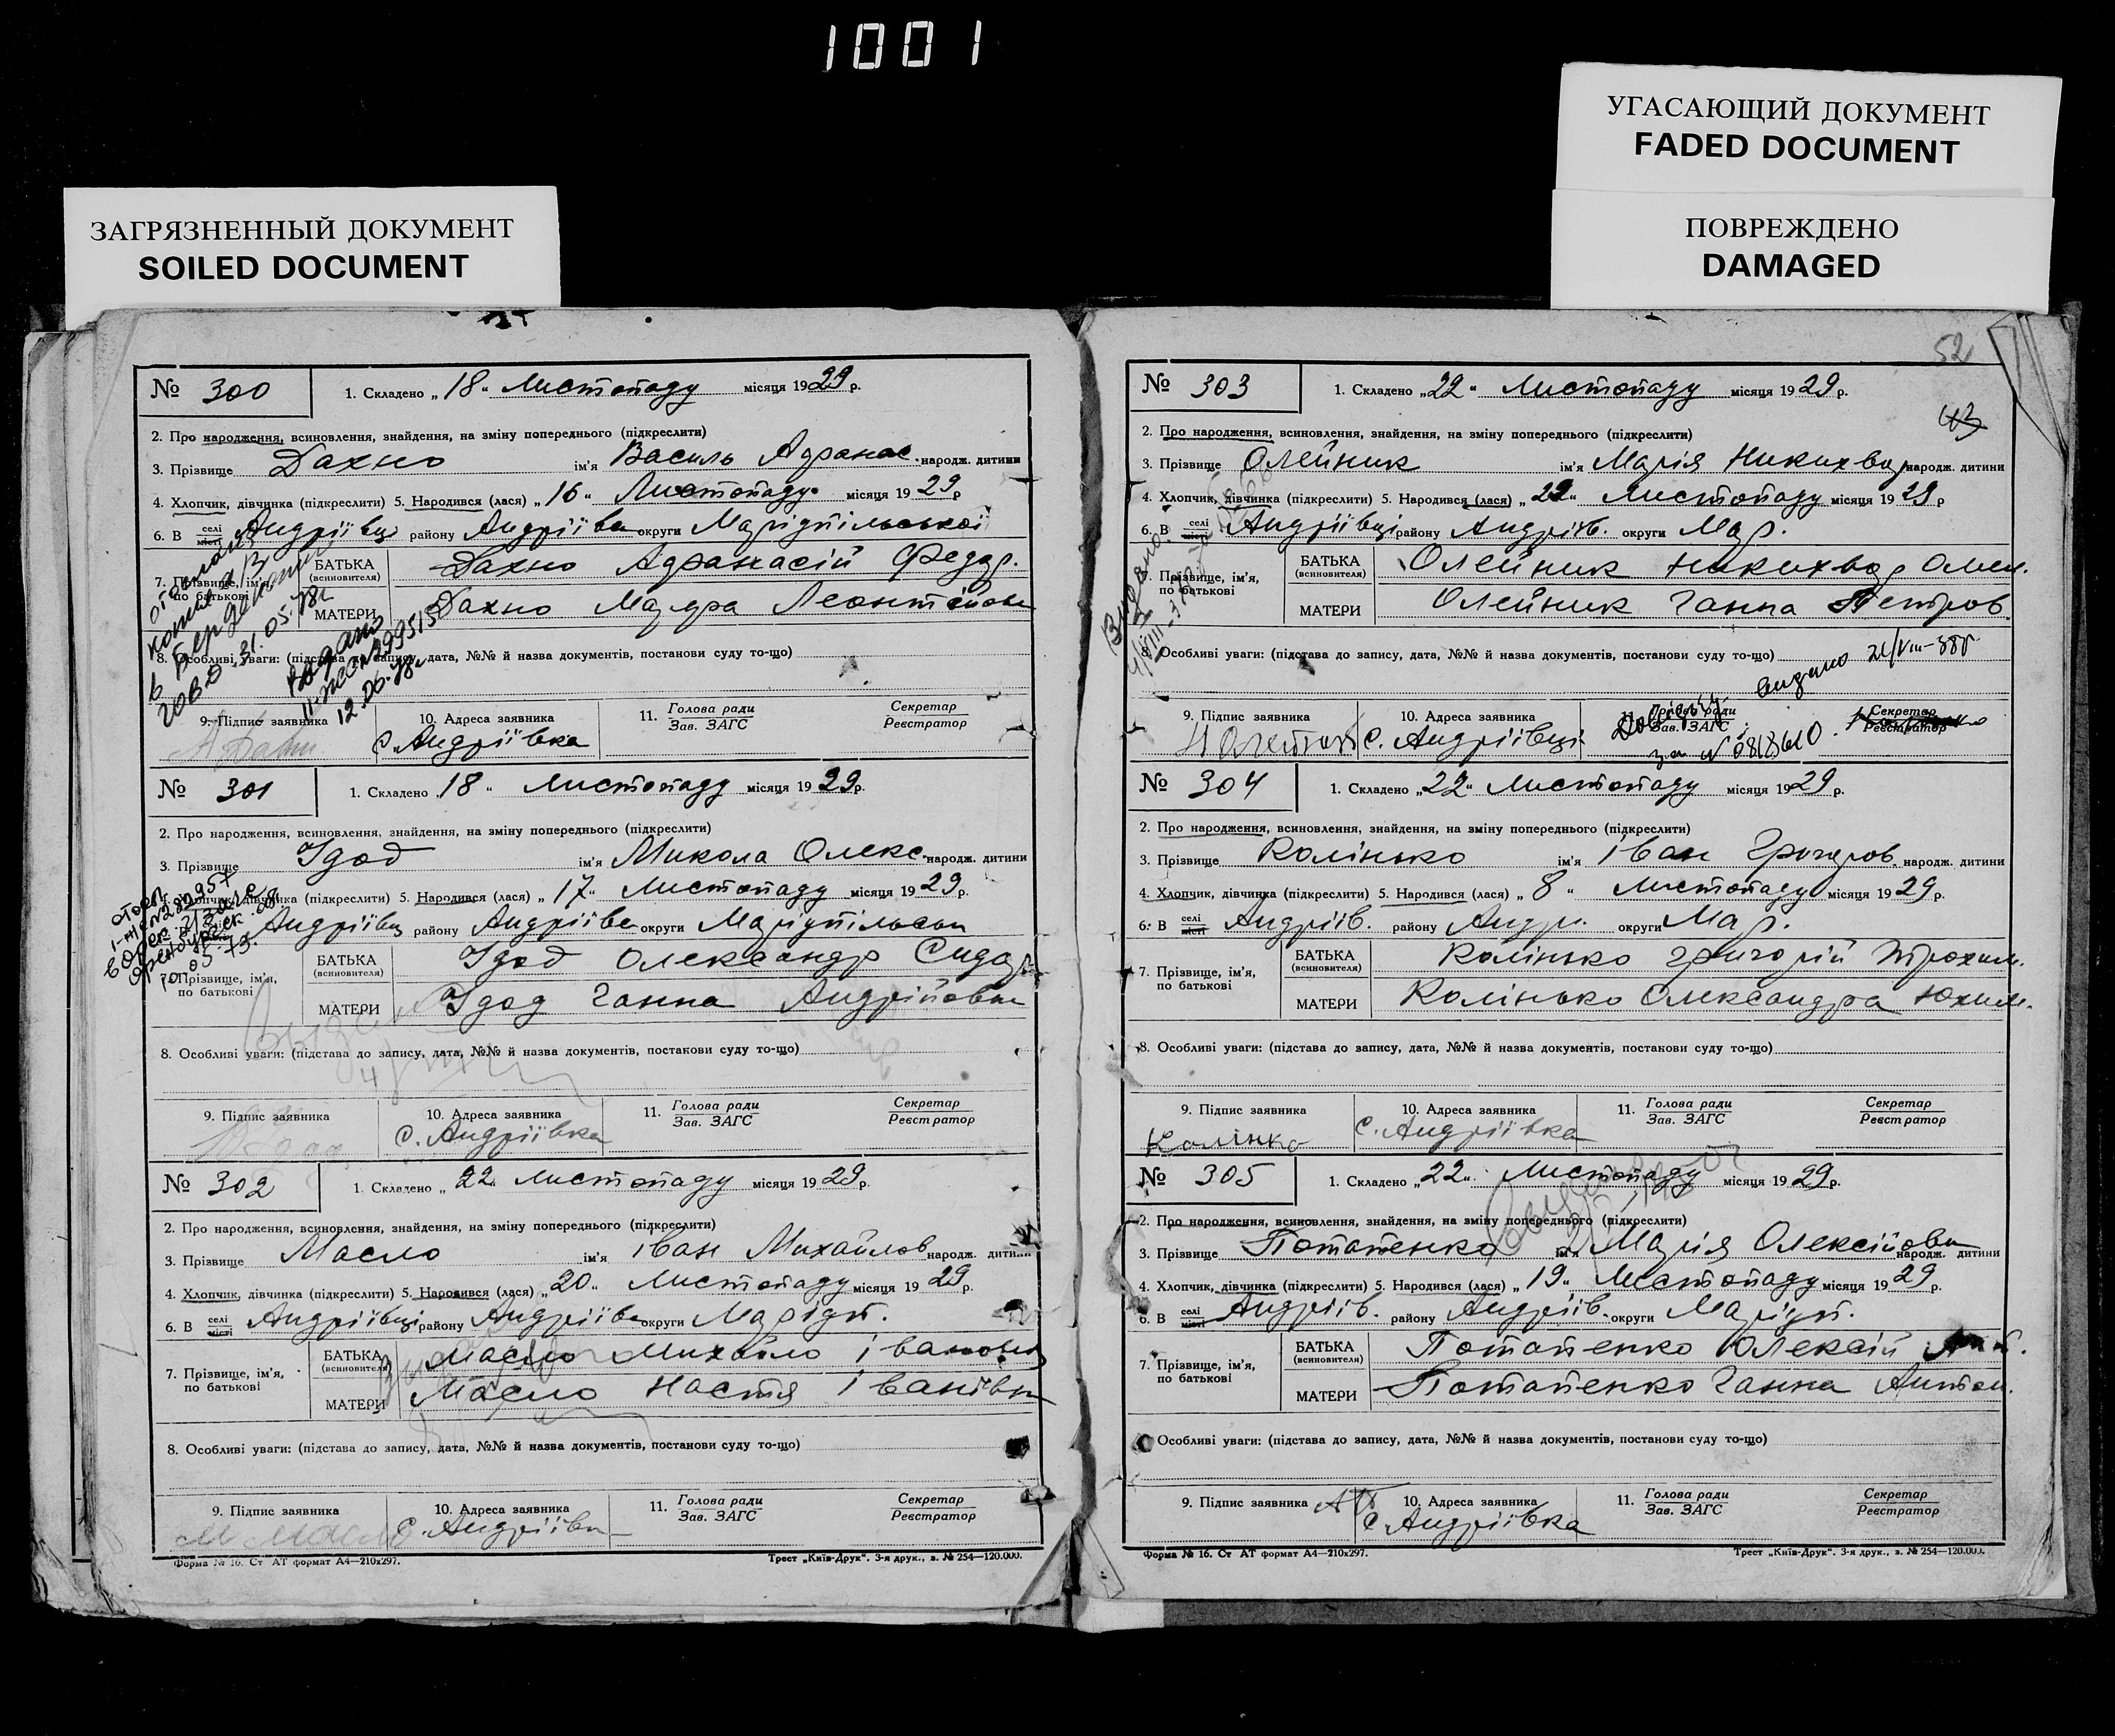 1001
УГАСАЮЩИЙ ДОКУМЕНТ
FADED DOCUMENT
ПОВРЕЖДЕНО
DAMAGED
ЗАГРЯЗНЕННЫЙ ДОКУМЕНТ
SOILED DOCUMENT
№ 300 1. Складено „18" Листопаду місяця 1929 р.
2. Про народження, всиновлення, знайдення, на зміну попереднього (підкреслити)
3. Прізвище Дахно ім'я Василь Афанас. народж. дитини
4. Хлопчик, дівчинка (підкреслити) 5. Народився (лася) „16" Листопаду місяця 1929 р
6. В селі місті Андріївці району Андріївськ округи Маріюпільської
7. Прізвище, ім'я, по батькові БАТЬКА (всиновителя) Дахно Афанасій Федор.
МАТЕРИ Дахно Марфа
8. Особливі уваги: (підстава до запису, дата, №№ й назва документів, постанови суду то-що)
31.05.78г
Выдано
12.06.78г
9. Підпис заявника 10. Адреса заявника 11. Голова ради Зав. ЗАГС Секретар Реєстратор
с. Андріївка
№ 301 1. Складено „18" Листопаду місяця 1929 р.
2. Про народження, всиновлення, знайдення, на зміну попереднього (підкреслити)
3. Прізвище Ідод ім'я Микола Олекс. народж. дитини
4. Хлопчик, дівчинка (підкреслити) 5. Народився (лася) „17" Листопаду місяця 1929 р.
Андріївц району Андріївс округи Маріюпільськ
7. Прізвище, ім'я, по батькові БАТЬКА (всиновителя) Ідод Олександр Сидор
МАТЕРИ Ідод Ганна Андрійовна
8. Особливі уваги: (підстава до запису, дата, №№ й назва документів, постанови суду то-що)
9. Підпис заявника 10. Адреса заявника 11. Голова ради Зав. ЗАГС Секретар Реєстратор
с. Андріївка
№ 302 1. Складено „22" Листопаду місяця 1929 р.
2. Про народження, всиновлення, знайдення, на зміну попереднього (підкреслити)
3. Прізвище Масло ім'я Іван Михайлов народж. дитини
4. Хлопчик, дівчинка (підкреслити) 5. Народився (лася) „20" Листопаду місяця 1929 р.
6. В селі місті Андріївці району Андріївс округи Маріюп.
7. Прізвище, ім'я, по батькові БАТЬКА (всиновителя) Масло Михайло Іванович
МАТЕРИ Масло Настя Іванівна
8. Особливі уваги: (підстава до запису, дата, №№ й назва документів, постанови суду то-що)
9. Підпис заявника 10. Адреса заявника 11. Голова ради Зав. ЗАГС Секретар Реєстратор
М Масло с. Андріївка
Форма № 16. Ст АТ формат А4—210х297. Трест „Київ-Друк". 3-я друк., з. № 254—120.000.
52
43
№ 303 1. Складено „22" Листопаду місяця 1929 р.
2. Про народження, всиновлення, знайдення, на зміну попереднього (підкреслити)
3. Прізвище Олейник ім'я Марія Никихвор народж. дитини
4. Хлопчик, дівчинка (підкреслити) 5. Народився (лася) „22" Листопаду місяця 1929 р
6. В селі місті Андріївці району Андріїв. округи Мар.
7. Прізвище, ім'я, по батькові БАТЬКА (всиновителя) Олейник Никихвор Омел.
МАТЕРИ Олейник Ганна Петров
8. Особливі уваги: (підстава до запису, дата, №№ й назва документів, постанови суду то-що)
видано
9. Підпис заявника 10. Адреса заявника 11. Голова ради Зав. ЗАГС Секретар Реєстратор
с. Андріївці
№ 304 1. Складено „22" Листопаду місяця 1929 р.
2. Про народження, всиновлення, знайдення, на зміну попереднього (підкреслити)
3. Прізвище Калінько ім'я Іван Григоров. народж. дитини
4. Хлопчик, дівчинка (підкреслити) 5. Народився (лася) „8" Листопаду місяця 1929 р.
6. В селі місті Андріїв. району Андр. округи Мар.
7. Прізвище, ім'я, по батькові БАТЬКА (всиновителя) Калінько Григорій Трохим.
МАТЕРИ Калінько Олександра Юхим.
8. Особливі уваги: (підстава до запису, дата, №№ й назва документів, постанови суду то-що)
9. Підпис заявника 10. Адреса заявника 11. Голова ради Зав. ЗАГС Секретар Реєстратор
Калінко с. Андріївка
№ 305 1. Складено „22" Листопаду місяця 1929 р.
2. Про народження, всиновлення, знайдення, на зміну попереднього (підкреслити)
3. Прізвище Потапенко ім'я Марія Олексійовн народж. дитини
4. Хлопчик, дівчинка (підкреслити) 5. Народився (лася) „19" Листопаду місяця 1929 р.
6. В селі місті Андріїв. району Андріїв. округи Маріюп.
7. Прізвище, ім'я, по батькові БАТЬКА (всиновителя) Потапенко Олексій
МАТЕРИ Потапенко Ганна Антон.
Особливі уваги: (підстава до запису, дата, №№ й назва документів, постанови суду то-що)
9. Підпис заявника 10. Адреса заявника 11. Голова ради Зав. ЗАГС Секретар Реєстратор
с. Андріївка
Форма № 16. Ст АТ формат А4—210х297. Трест „Київ-Друк". 3-я друк., з. № 254—120.000.